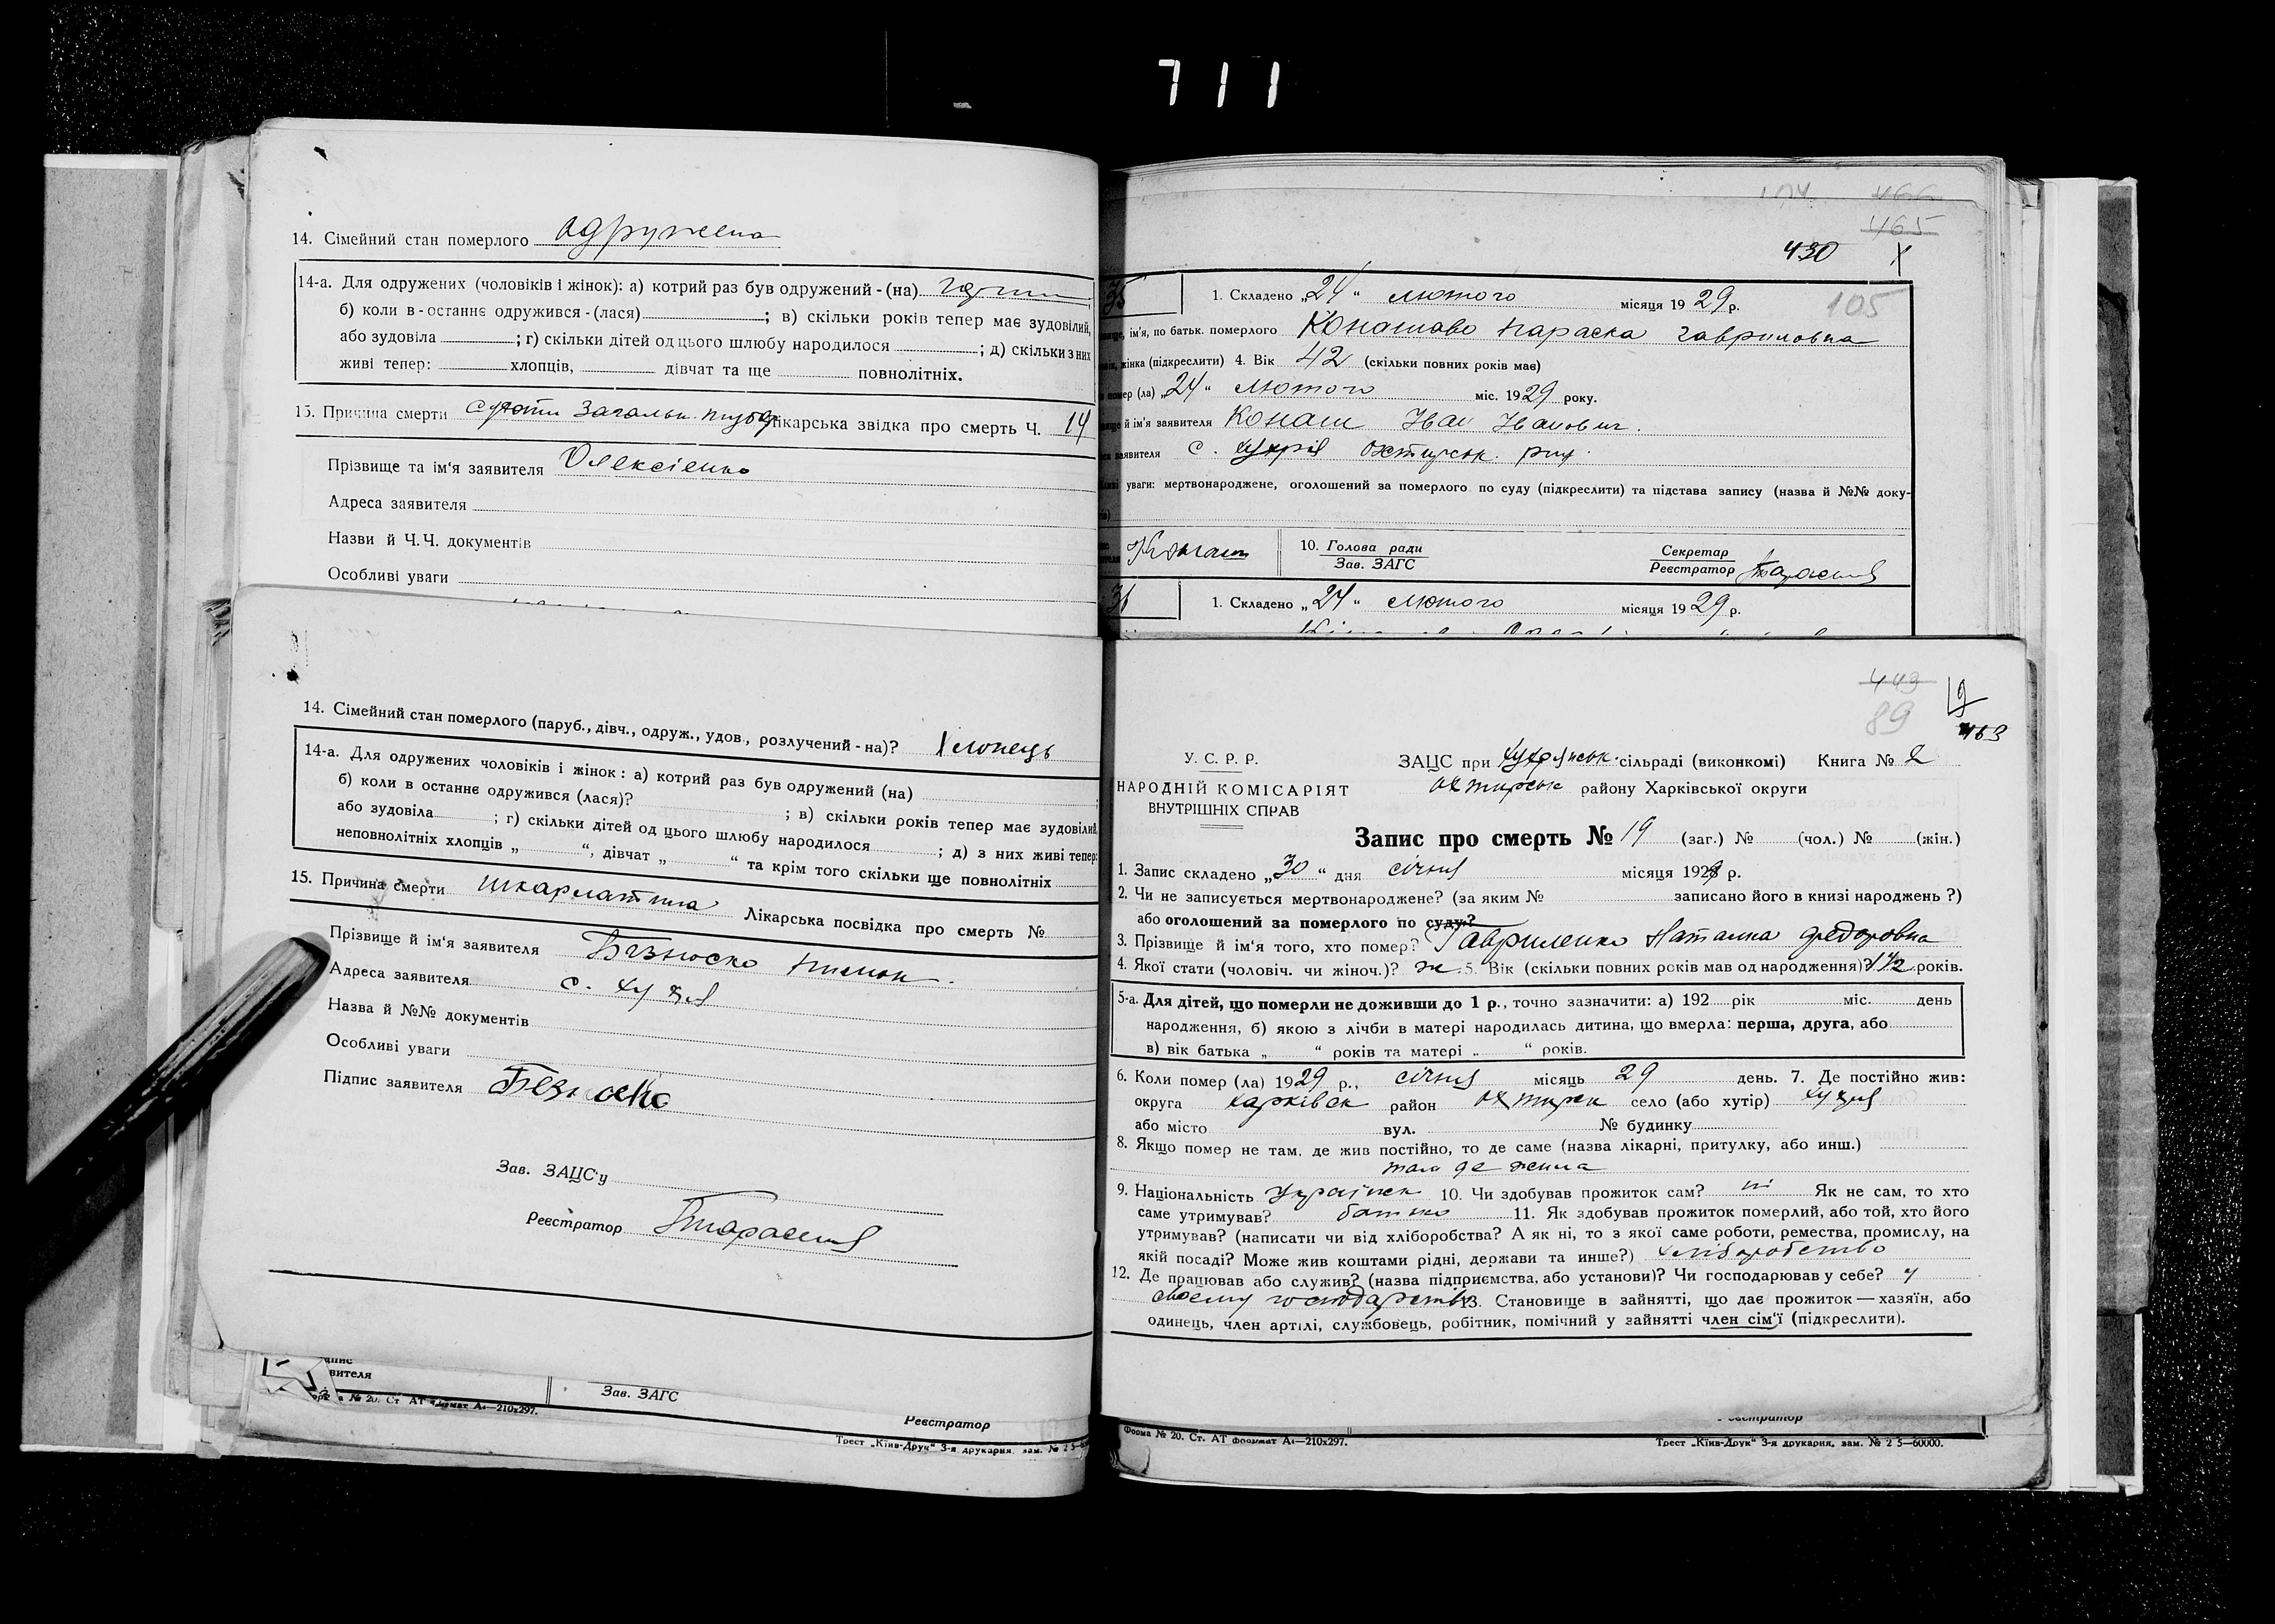 711
14. Сімейний стан померлого одружена
14-а. Для одружених (чоловіків і жінок): а) котрий раз був одружений - (на)
б) коли в - останнє одружився - (лася) ; в) скільки років тепер має зудовілий,
або зудовіла ; г) скільки дітей од цього шлюбу народилося ; д) скільки з них
живі тепер: хлопців, дівчат та ще повнолітніх.
15. Причина смерти лікарська звідка про смерть Ч. 14
Прізвище та ім'я заявителя Олексієнко
Адреса заявителя
Назви й Ч.Ч. документів
Особливі уваги
14. Сімейний стан померлого (паруб., дівч., одруж., удов., розлучений - на)? Хлопець
14-а. Для одружених чоловіків і жінок: а) котрий раз був одружений (на)
б) коли в останнє одружився (лася)? ; в) скільки років тепер має зудовілий,
або зудовіла ; г) скільки дітей од цього шлюбу народилося ; д) з них живі тепер:
неповнолітніх хлопців „ “, дівчат „ “ та крім того скільки ще повнолітніх
15. Причина смерти шкарлатина Лікарська посвідка про смерть №
Прізвище й ім'я заявителя
Адреса заявителя с. Хухря
Назва й №№ документів
Особливі уваги
Підпис заявителя
Зав. ЗАЦС'у
Реєстратор
апис
вителя
Зав. ЗАГС
№ 20. Ст АТ формат А4—210х297.
Реєстратор
Трест „Київ-Друк“ 3-я друкарня, зам. № 2 5—
466
465
430 X
105
35 1. Складено „24“ лютого місяця 1929 р.
ім'я, по батьк. померлого Конашово Параска Гавриловна
жінка (підкреслити) 4. Вік 42 (скільки повних років має)
помер (ла) „24“ лютого міс. 1929 року.
й ім'я заявителя Конаш Іван Іванович.
заявителя с. Хухря Охтирськ. рну.
уваги: мертвонароджене, оголошений за померлого по суду (підкреслити) та підстава запису (назва й №№ доку-
Конаш 10. Голова ради
Зав. ЗАГС
Секретар
Реєстратор
36 1. Складено „24“ лютого місяця 1929 р.
443
89
19
463
У. С. Р. Р.
НАРОДНІЙ КОМІСАРІЯТ
ВНУТРІШНІХ СПРАВ
ЗАЦС при Хухрянськ. сільраді (виконкомі) Книга № 2
Охтирськ району Харківської округи
Запис про смерть № 19 (заг.) № (чол.) № (жін.)
1. Запис складено „30“ дня січня місяця 1929 р.
2. Чи не записується мертвонароджене? (за яким № записано його в книзі народжень ?)
або оголошений за померлого по суду?
3. Прізвище й ім'я того, хто помер? Гавриленко Наталка Федоровна
4. Якої стати (чоловіч. чи жіноч.)? ж 5. Вік (скільки повних років мав од народження)? 1 1/2 років.
5-а. Для дітей, що померли не доживши до 1 р., точно зазначити: а) 192 рік міс. день
народження, б) якою з лічби в матері народилась дитина, що вмерла: перша, друга, або
в) вік батька „ “ років та матері „ “ років.
6. Коли помер (ла) 1929 р., січня місяць 29 день. 7. Де постійно жив:
округа Харківськ район Охтирськ село (або хутір) Хухря
або місто вул. № будинку
8. Якщо помер не там, де жив постійно, то де саме (назва лікарні, притулку, або инш.)
там де жила
9. Національність Українк 10. Чи здобував прожиток сам? ні Як не сам, то хто
саме утримував? батько 11. Як здобував прожиток померлий, або той, хто його
утримував? (написати чи від хліборобства? А як ні, то з якої саме роботи, ремества, промислу, на
якій посаді? Може жив коштами рідні, держави та инше?) хліборобство
12. Де працював або служив? (назва підприємства, або установи)? Чи господарював у себе? у
своему господарстві 13. Становище в зайнятті, що дає прожиток — хазяїн, або
одинець, член артілі, службовець, робітник, помічний у зайнятті член сім'ї (підкреслити).
Реєстратор
Форма № 20. Ст. АТ формат А4—210х297.
Трест „Київ-Друк“ 3-я друкарня, зам. № 2 5—60000.